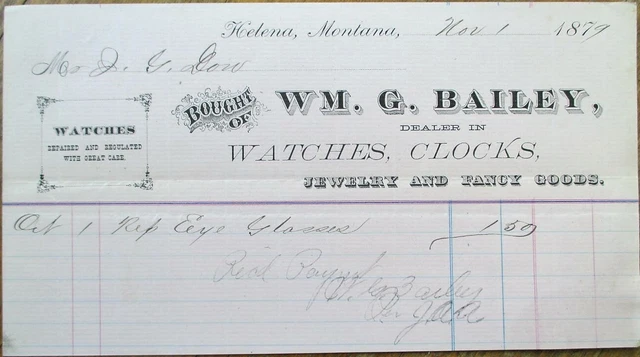 Helena, Montana, Nov 1 1879
Mr J. G. Dow
BOUGHT OF WM. G. BAILEY,
DEALER IN
WATCHES, CLOCKS,
JEWELRY AND FANCY GOODS.
WATCHES
REPAIRED AND REGULATED
WITH GREAT CARE.
Oct 1 Rep Eye Glasses 1 50
Rec'd Paymt
W. G. Bailey
Per